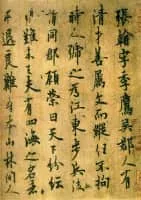 張翰字季鷹吳郡人有
清才善屬文而縱任不拘
時人號之為江東步兵後
謂同郡顧榮曰天下紛紜
禍難未已夫有四海之名者
求退良難吾本山林間人